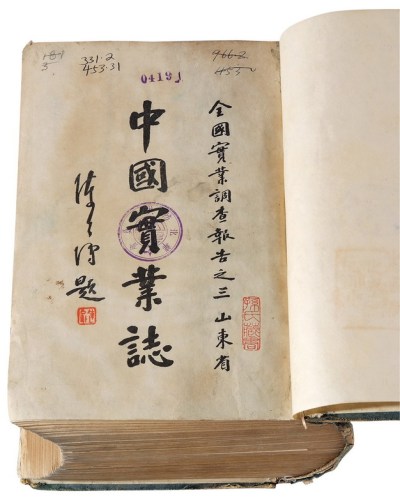 331.2
453.31
04131
966.2
453
全國實業調查報告之三 山東省
中國實業誌
陳公博題
孫氏藏書